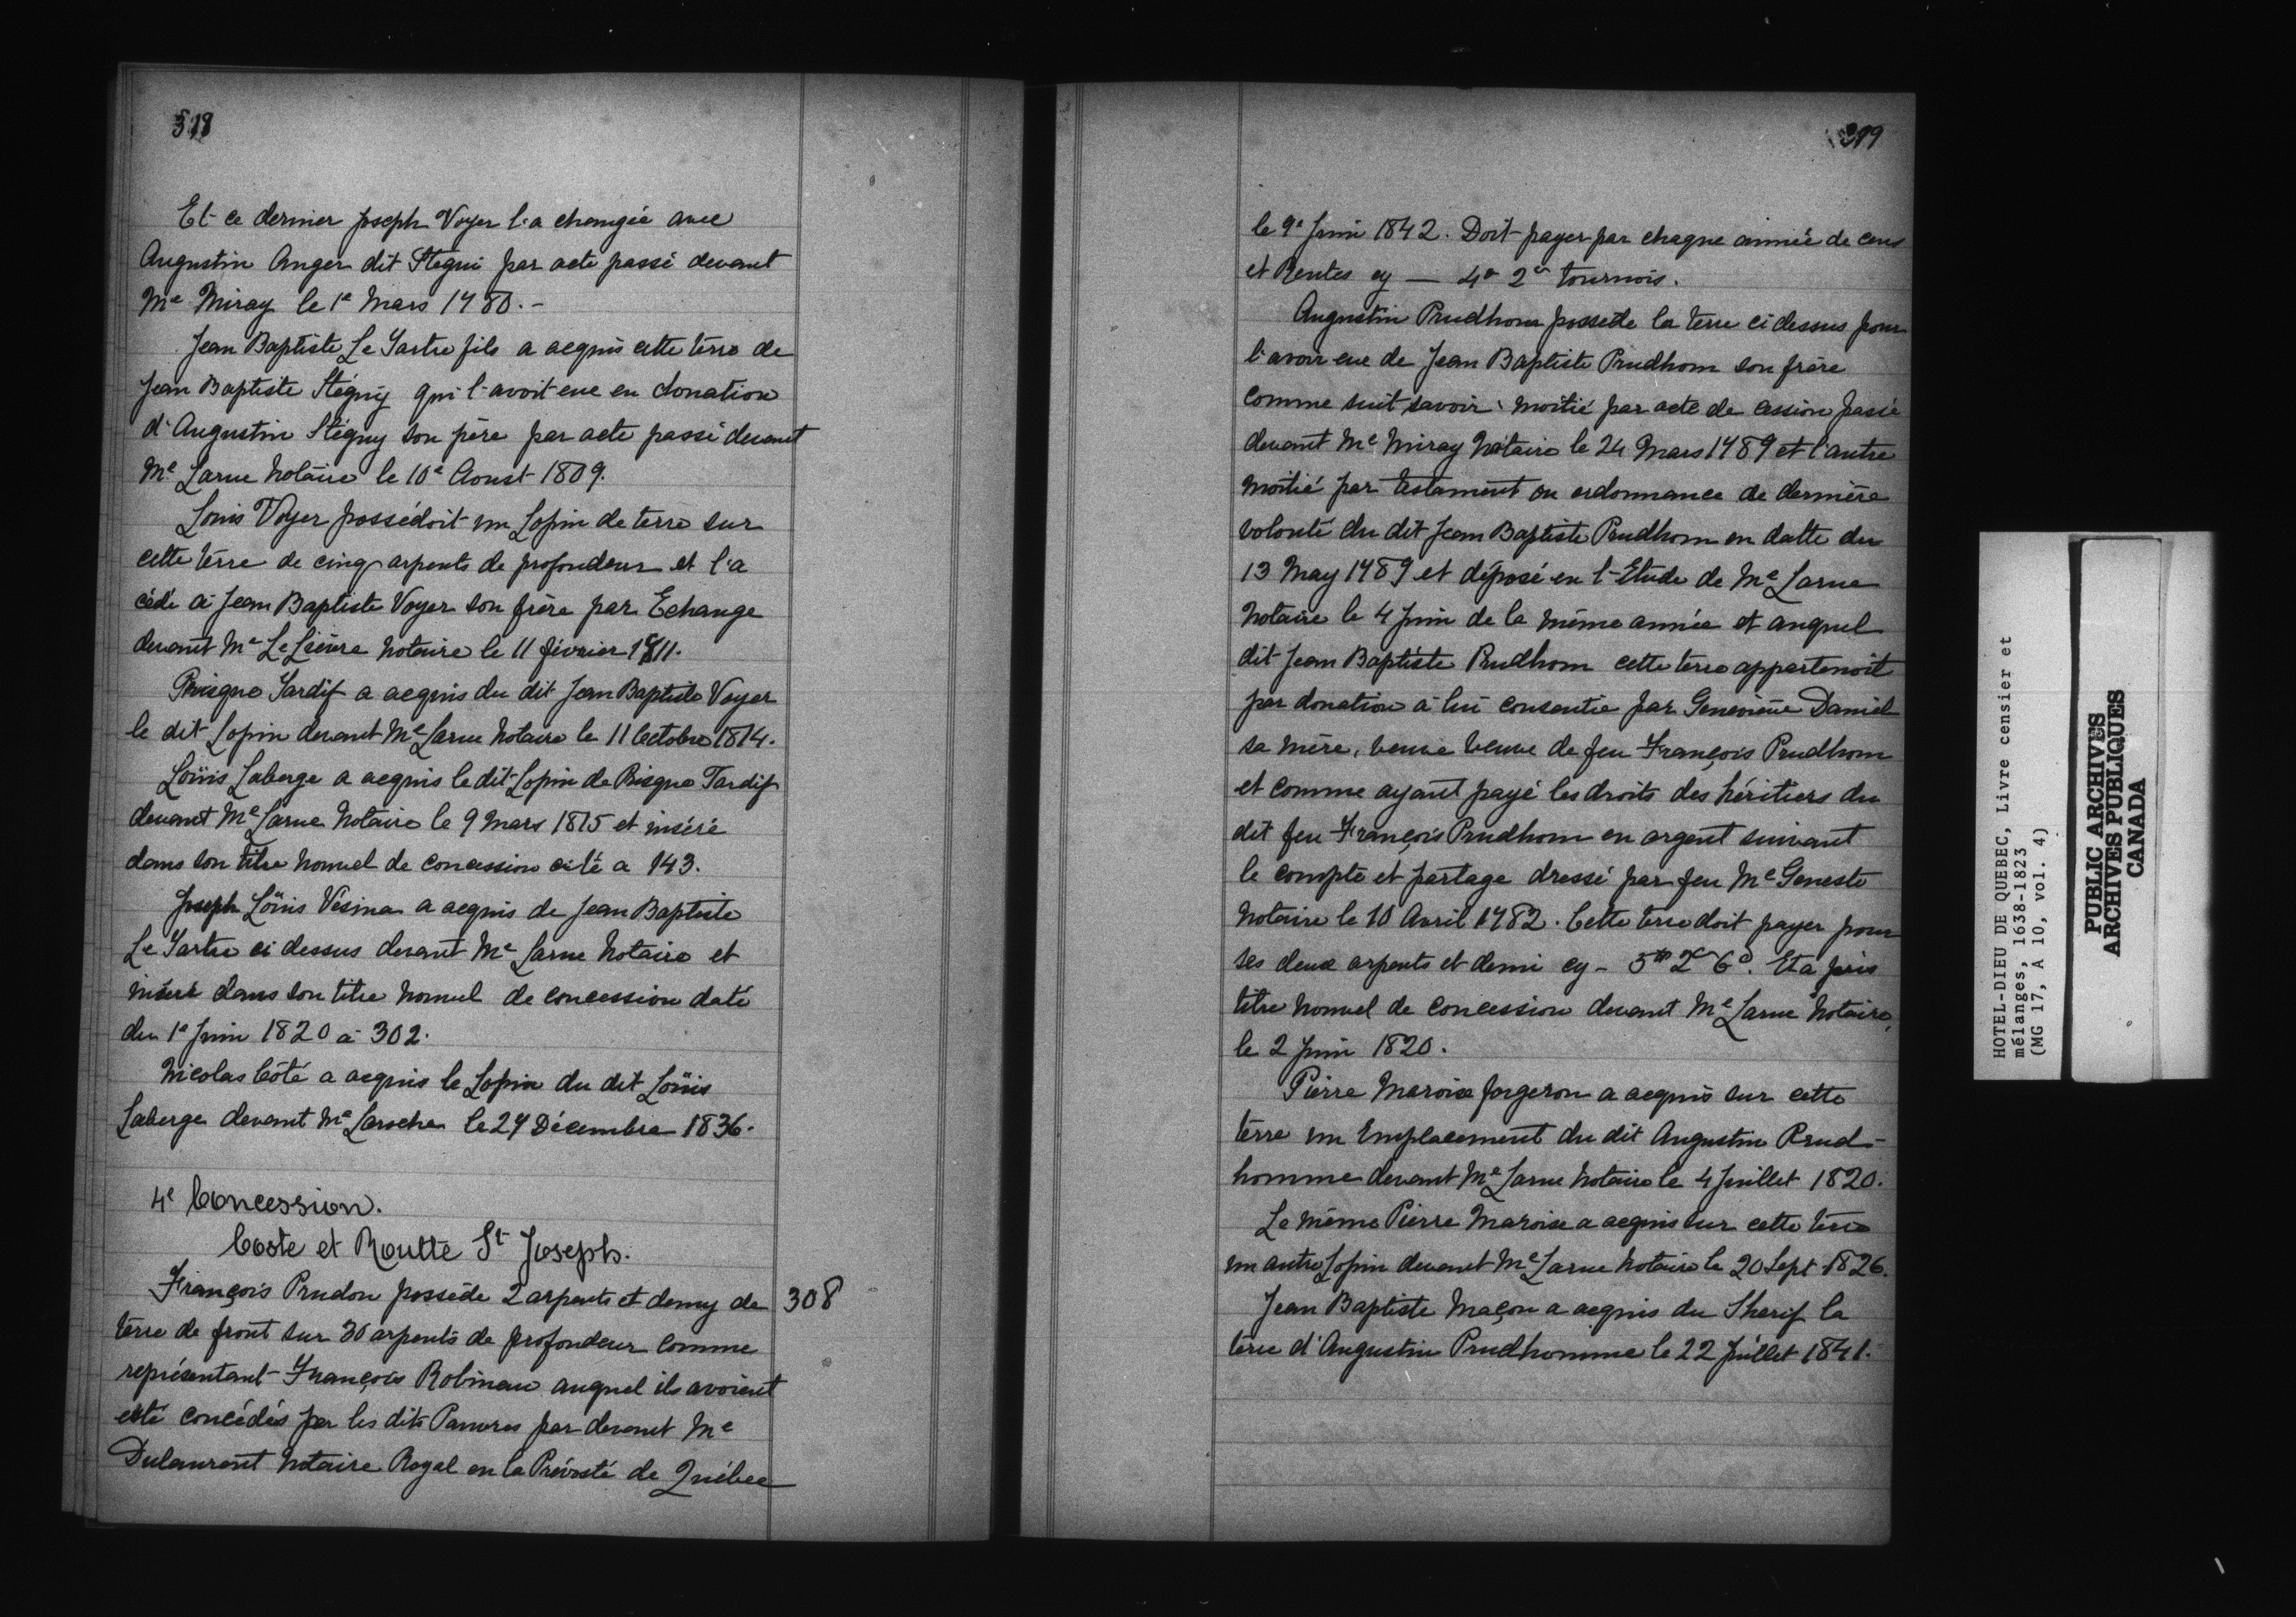 318
Et ce dernier Joseph Voyer l'a changée avec
Augustin Anger dit Stegui par acte passé devant
Me Miray le 1e Mars 1780.-
Jean Baptiste Le Tartre fils a acquis cette terre de
Jean Baptiste Stéguÿ qui l'avoit eue en donation
d'Augustin Stéguy son père par acte passé devant
Me Larue Notaire le 10e Aoust 1809.
Louis Voyer possédoit un Lopin de terre sur
cette terre de cinq arpents de profondeur et l'a
cédé à Jean Baptiste Voyer son frère par Echange
devant Me LeLièvre Notaire le 11 février 1811.
Prisque Tardif a acquis du dit Jean Baptiste Voyer
le dit Lopin devant Me Larue Notaire le 11 Octobre 1814.
Loüis Laberge a acquis le dit Lopin de Prisque Tardif
devant Me Larue Notaire le 9 Mars 1815 et inséré
dans son titre nouvel de concession cité a 143.
Joseph Loüis Vésina a acquis de Jean Baptiste
Le Tartre ci dessus devant Me Larue Notaire et
inséré dans son titre nouvel de concession daté
du 1e Juin 1820 à 302.
Nicolas Côté a acquis le Lopin du dit Loüis
Laberge devant Me Laroche le 27 Décembre 1836.
4e Concession.
Coste et Routte St Joseph.
François Prudon possède 2 arpents et demy de 308
terre de front sur 30 arpents de profondeur comme
représentant François Robineau auquel ils avoient
esté concédés par les dits Pauvres par devant Me
Dulaurent Notaire Royal en la Prévosté de Québec
319
le 9e Juin 1742. Doit payer par chaque année de cens
et Rentes cy — 2 tournois.
Augustin Prudhom possede la terre ci dessus pour
l'avoir eue de Jean Baptiste Prudhom son frère
comme suit savoir: moitié par acte de cession passé
devant Me Miray Notaire le 24 Mars 1789 et l'autre
moitié par testament ou ordonnance de dernière
volonté du dit Jean Baptiste Prudhom en datte du
13 May 1789 et déposé en l'Etude de Me Larue
Notaire le 4 Juin de la même année et auquel
dit Jean Baptiste Prudhom cette terre appartenoit
par donation à lui consentie par Geneviève Daniel
sa mère, veuve veuve de feu François Prudhom
et comme ayant payé les droits des héritiers du
dit feu François Prudhom en argent suivant
le compte et partage dressé par feu Me Geneste
Notaire le 10 Avril 1782. Cette terre doit payer pour
ses deux arpents et demi cy - 5tt 2s 6d. Et a pris
titre nouvel de concession devant Me Larue Notaire,
le 2 Juin 1820.
Pierre Maroise forgeron a acquis sur cette
terre un Emplacement du dit Augustin Prud-
homme devant Me Larue Notaire le 4 Juillet 1820.
Le même Pierre Maroise a acquis sur cette terre
un autre Lopin devant Me Larue Notaire le 20 Sept 1826.
Jean Baptiste Maçon a acquis du Sherif la
terre d'Augustin Prudhomme le 22 Juillet 1841.
HOTEL-DIEU DE QUEBEC, Livre censier et
mélanges, 1638-1823
(MG 17, A 10, vol. 4)
PUBLIC ARCHIVES
ARCHIVES PUBLIQUES
CANADA